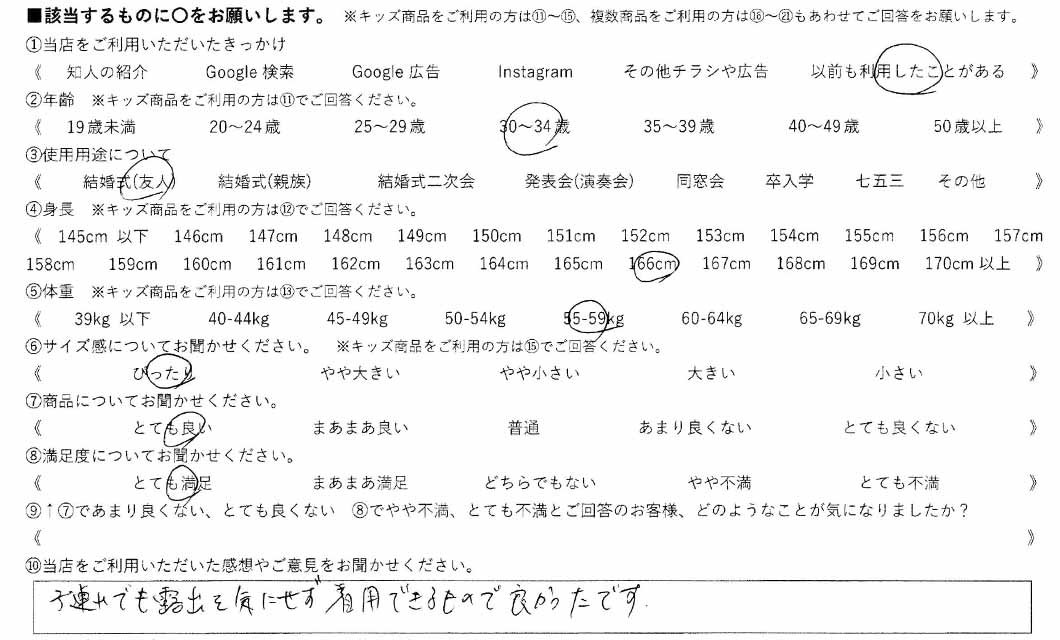 ■該当するものに〇をお願いします。 ※キッズ商品をご利用の方は⑪～⑮、複数商品をご利用の方は⑯～㉑もあわせてご回答をお願いします。
①当店をご利用いただいたきっかけ
《 知人の紹介 Google 検索 Google 広告 Instagram その他チラシや広告 以前も利用したことがある 》
②年齢 ※キッズ商品をご利用の方は⑪でご回答ください。
《 19歳未満 20～24歳 25～29歳 30～34歳 35～39歳 40～49歳 50歳以上 》
③使用用途について
《 結婚式(友人) 結婚式(親族) 結婚式二次会 発表会(演奏会) 同窓会 卒入学 七五三 その他 》
④身長 ※キッズ商品をご利用の方は⑫でご回答ください。
《 145cm 以下 146cm 147cm 148cm 149cm 150cm 151cm 152cm 153cm 154cm 155cm 156cm 157cm
158cm 159cm 160cm 161cm 162cm 163cm 164cm 165cm 166cm 167cm 168cm 169cm 170cm以上 》
⑤体重 ※キッズ商品をご利用の方は⑬でご回答ください。
《 39kg 以下 40-44kg 45-49kg 50-54kg 55-59kg 60-64kg 65-69kg 70kg 以上 》
⑥サイズ感についてお聞かせください。 ※キッズ商品をご利用の方は⑮でご回答ください。
《 ぴったり やや大きい やや小さい 大きい 小さい 》
⑦商品についてお聞かせください。
《 とても良い まあまあ良い 普通 あまり良くない とても良くない 》
⑧満足度についてお聞かせください。
《 とても満足 まあまあ満足 どちらでもない やや不満 とても不満 》
⑨↑⑦であまり良くない、とても良くない ⑧でやや不満、とても不満とご回答のお客様、どのようなことが気になりましたか？
《 》
⑩当店をご利用いただいた感想やご意見をお聞かせください。
子連れでも露出を気にせず着用できるもので良かったです.